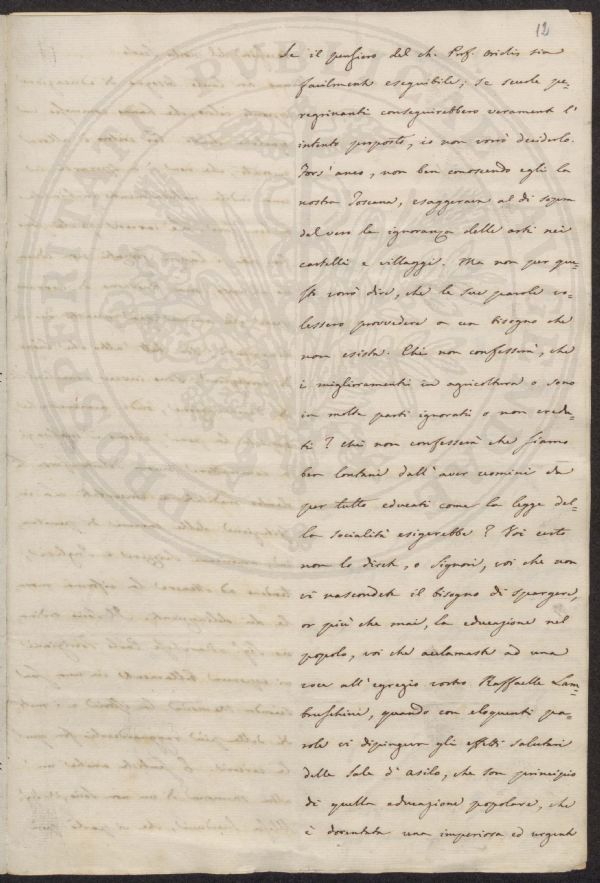 12
Se il pensiero del ch. Prof. Oridis sia
facilmente eseguibile; se scuole pe-
regrinanti conseguirebbero verament l'
intento proposto, io non vorrò deciderlo.
Fors' anco, non ben conoscendo egli la
nostra Toscana, esagerava al di sopra
del vero la ignoranza delle arti nei
castelli e villaggi. Ma non per que-
sto vorrò dire, che le sue parole vo-
lessero provvedere a un bisogno che
non esista. Chi non confesserà, che
i miglioramenti in agricoltura o sono
in molte parti ignorati o non credu-
ti? Chi non confesserà che siamo
ben lontani dall' aver uomini da
per tutto educati come la legge del-
la socialità esigerebbe? Voi certo
non lo direte, o Signori, voi che non
vi nascondete il bisogno di spargere,
or più che mai, la educazione nel
popolo, voi che acclamaste ad una
voce all' egregio vostro Raffaelle Lam-
bruschini, quando con eloquenti pa-
role vi dipingeva gli effetti salutari
delle Sale d' asilo, che son principio
di quella educazione popolare, che
è diventata una imperiosa ed urgente